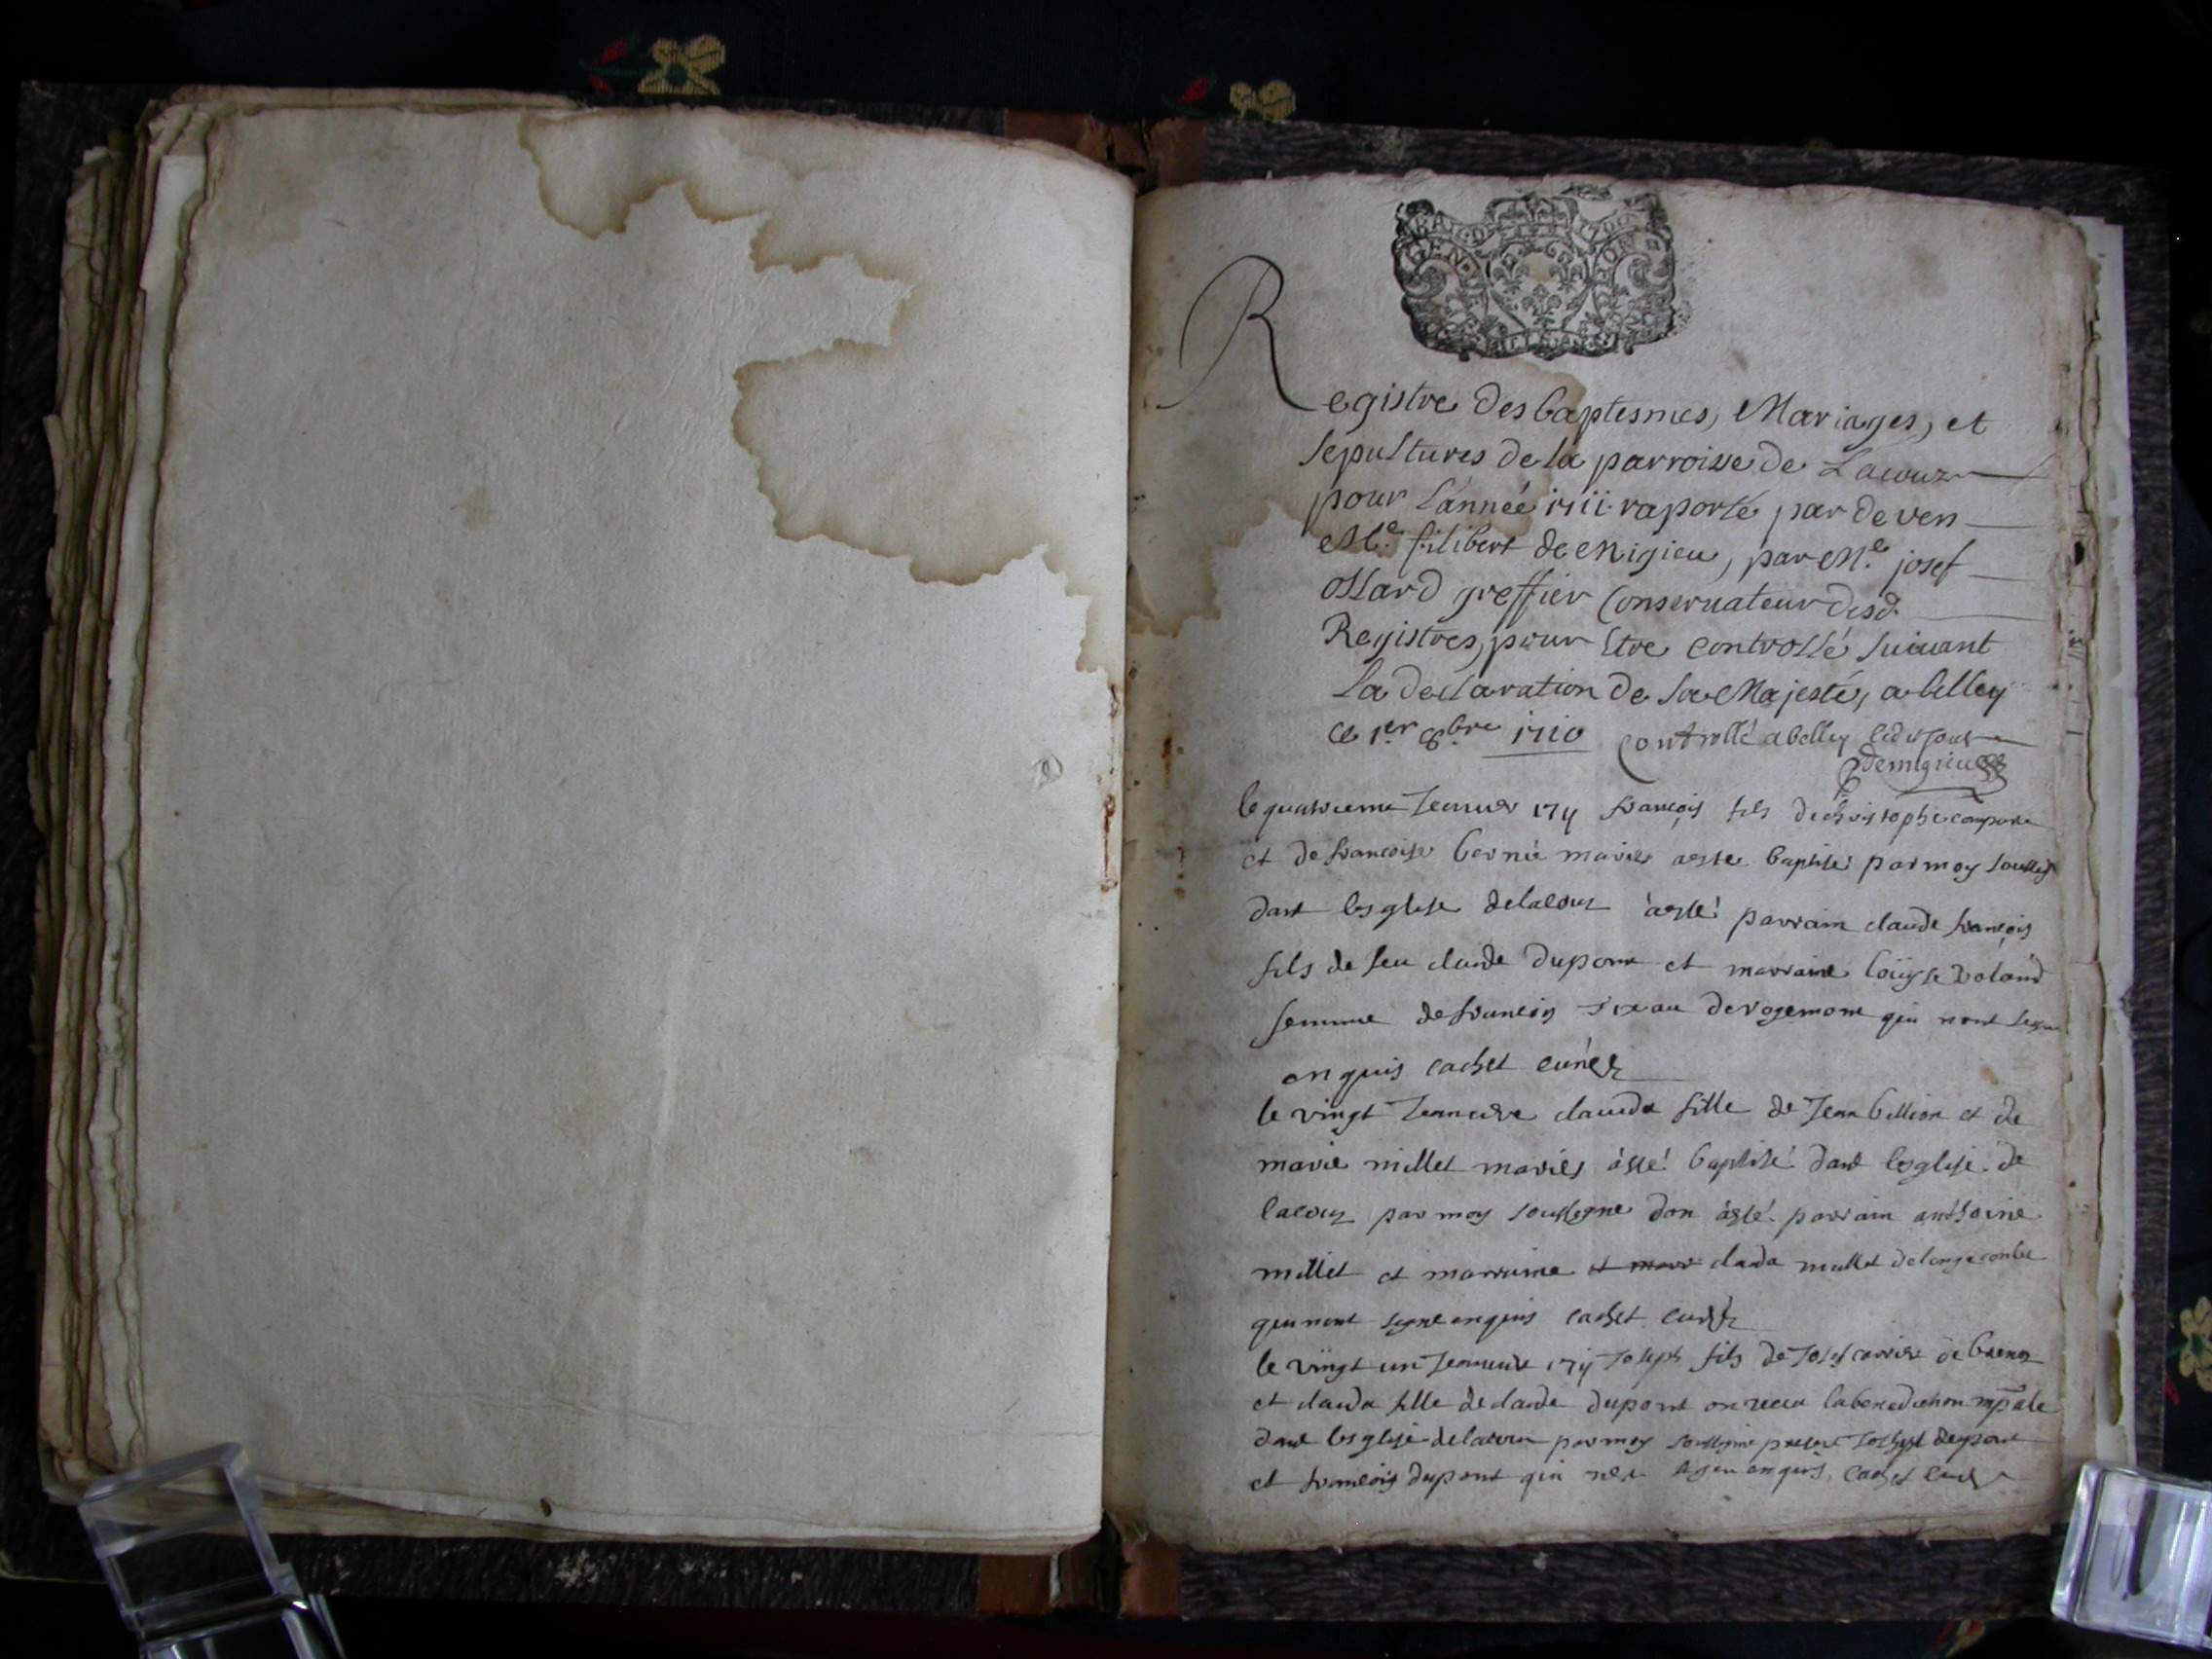 Registre des baptesmes, Mariages, et
sepultures de la parroisse de Lacouz
pour l'année 1711 raporté par deven
Me. filibert de Migieu, par Me. josef
Ollard greffier Conservateur desd.
Registres, pour Etre controllé suivant
la declaration de sa Majesté, a belley
ce 1er 8bre 1710 Controllé a belley ledit jour
demigieu
le quatrieme Jeanuier 1711 françois fils de christophe
et de francoise bernie mariés aeste baptisé par moy soussigné
dant lesglise delacouz aesté parrain claude françois
fils de feu claude dupont et marraine loüyse
femme de francois de rogemont qui nont
enquis cachet curé
le vingt Jeanuier clauda fille de Jean billion et de
marie millet mariés àsté baptisé dant leglise de
lacouz par moy soussigné don àsté parrain anthoine
millet et marraine et marr clauda millet de longecombe
qui nont signe enquis cachet curé
le vingt un Jeanuier 1711 Joseph fils de Josef carrier de brenoz
et clauda fille de claude dupont on receu la benediction npale
dant lesglise delacouz par moy soussigné present dupont
et francois dupont qui enquis cachet curé